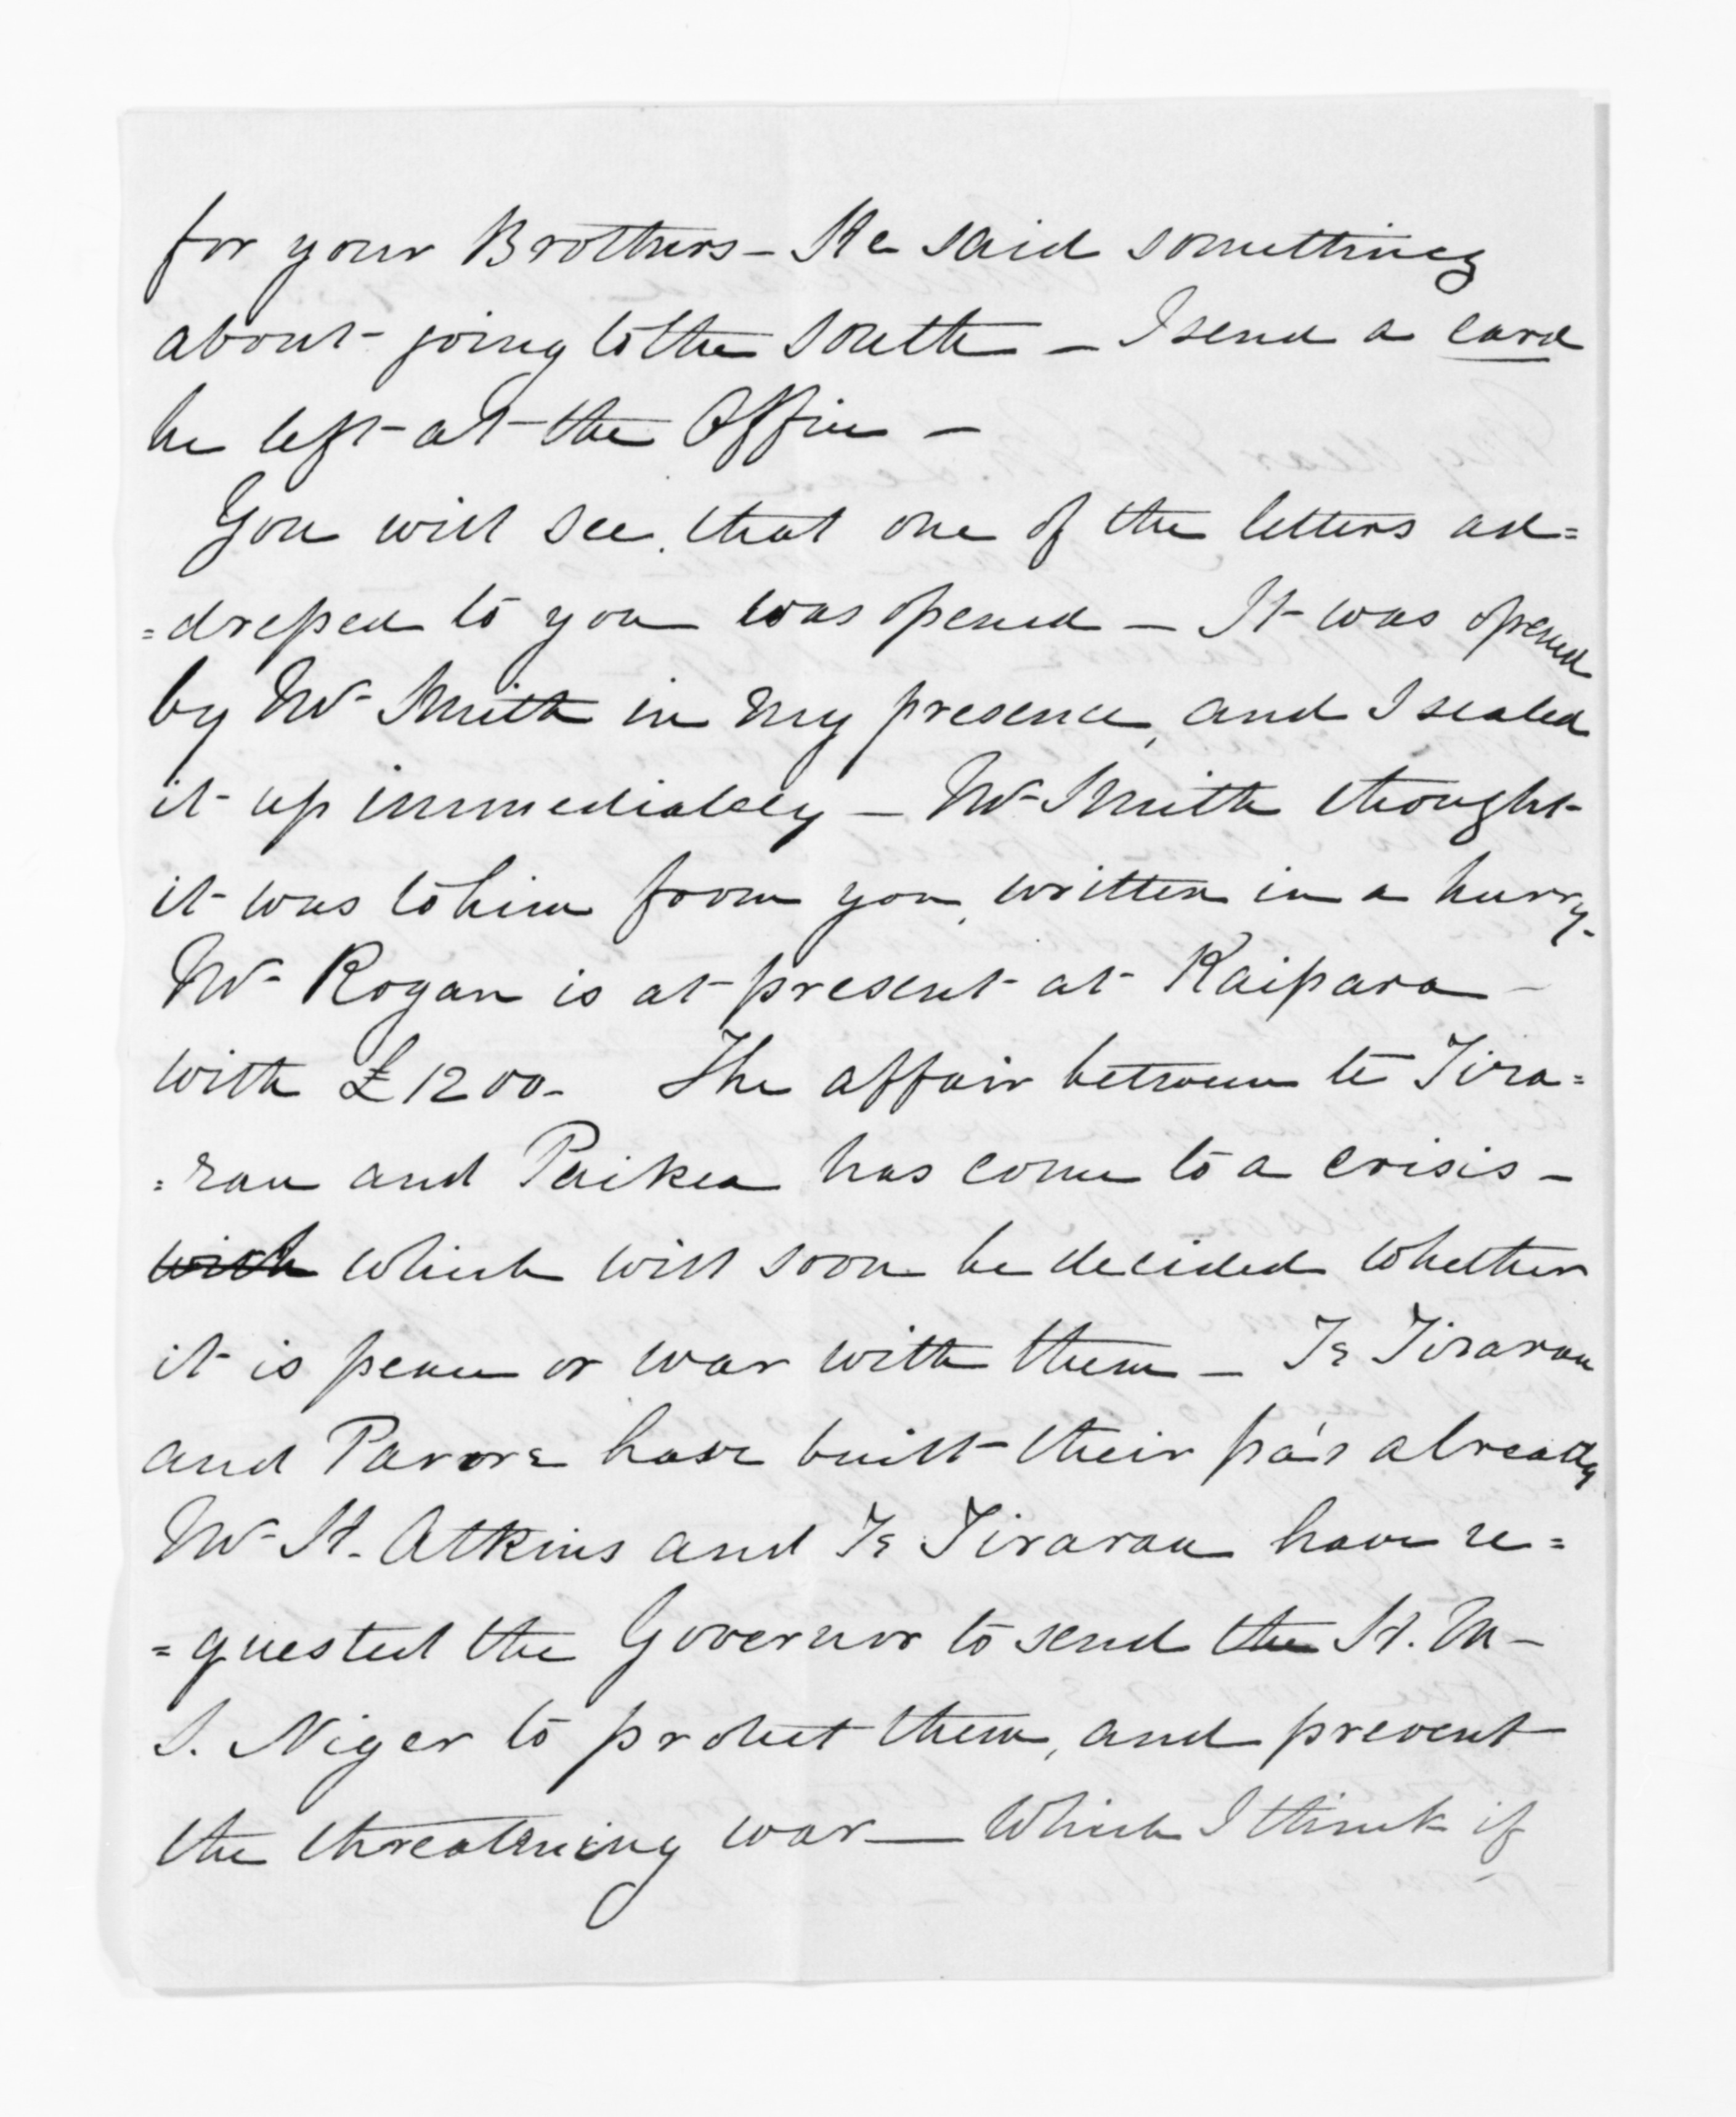 for your Brothers – He said something
about going to the South – I send a card
he left at the Office –
You will see that one of the letters ad=
=dressed to you was opened – It was opened
by Mr Smith in my presence, and I sealed
it up immediately – Mr Smith thought
it was to him from you, written in a hurry.
Mr Rogan is at present at Kaipara –
with £1200– The affair between te Tira=
=rau and Paikea has come to a crisis –
with which will soon be decided whether
it is peace or war with them – Te Tirarau
and Parore have built their pa's already
Mr H. Atkins and Te Tirarau have re=
=quested the Governor to send the H. M–
S. Niger to protect them, and prevent
the threatening war – Which I think if